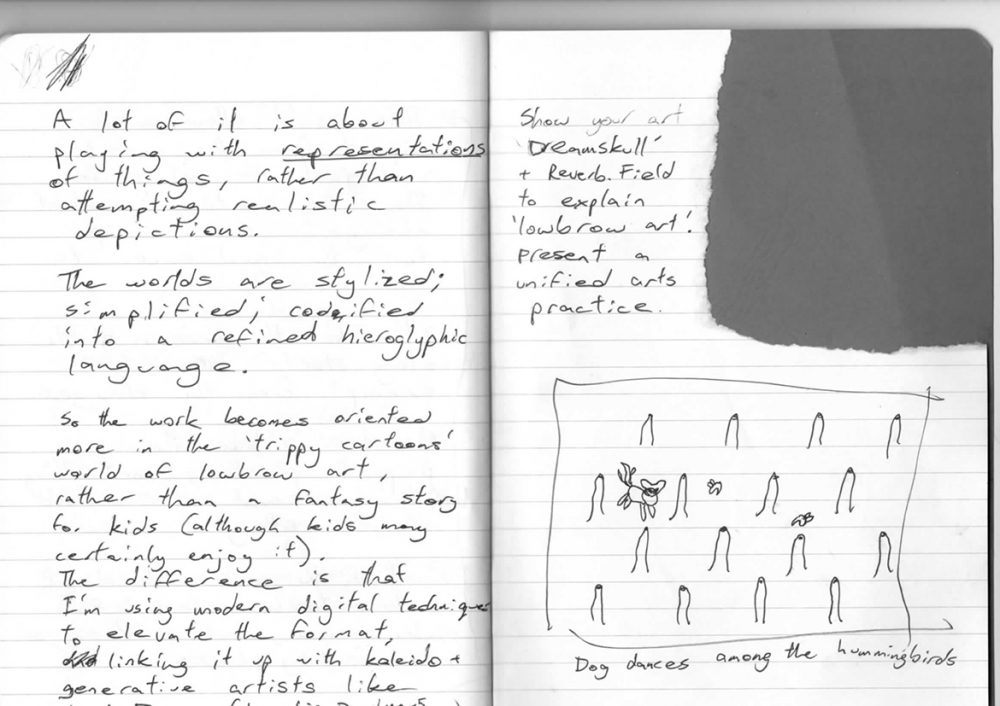 A lot of it is about
playing with representations
of things, rather than
attempting realistic
depictions.
The worlds are stylized;
simplified; codified
into a refined hieroglyphic
language.
So the work becomes oriented
more in the 'trippy cartoons'
world of lowbrow art,
rather than a fantasy story
for kids (although kids may
certainly enjoy it).
The difference is that
I'm using modern digital techniques
to elevate the format,
linking it up with kaleido +
generative artists like
Show your art
'Dreamskull'
+ Reverb. Field
to explain
'lowbrow art'.
present a
unified arts
practice.
Dog dances among the hummingbirds